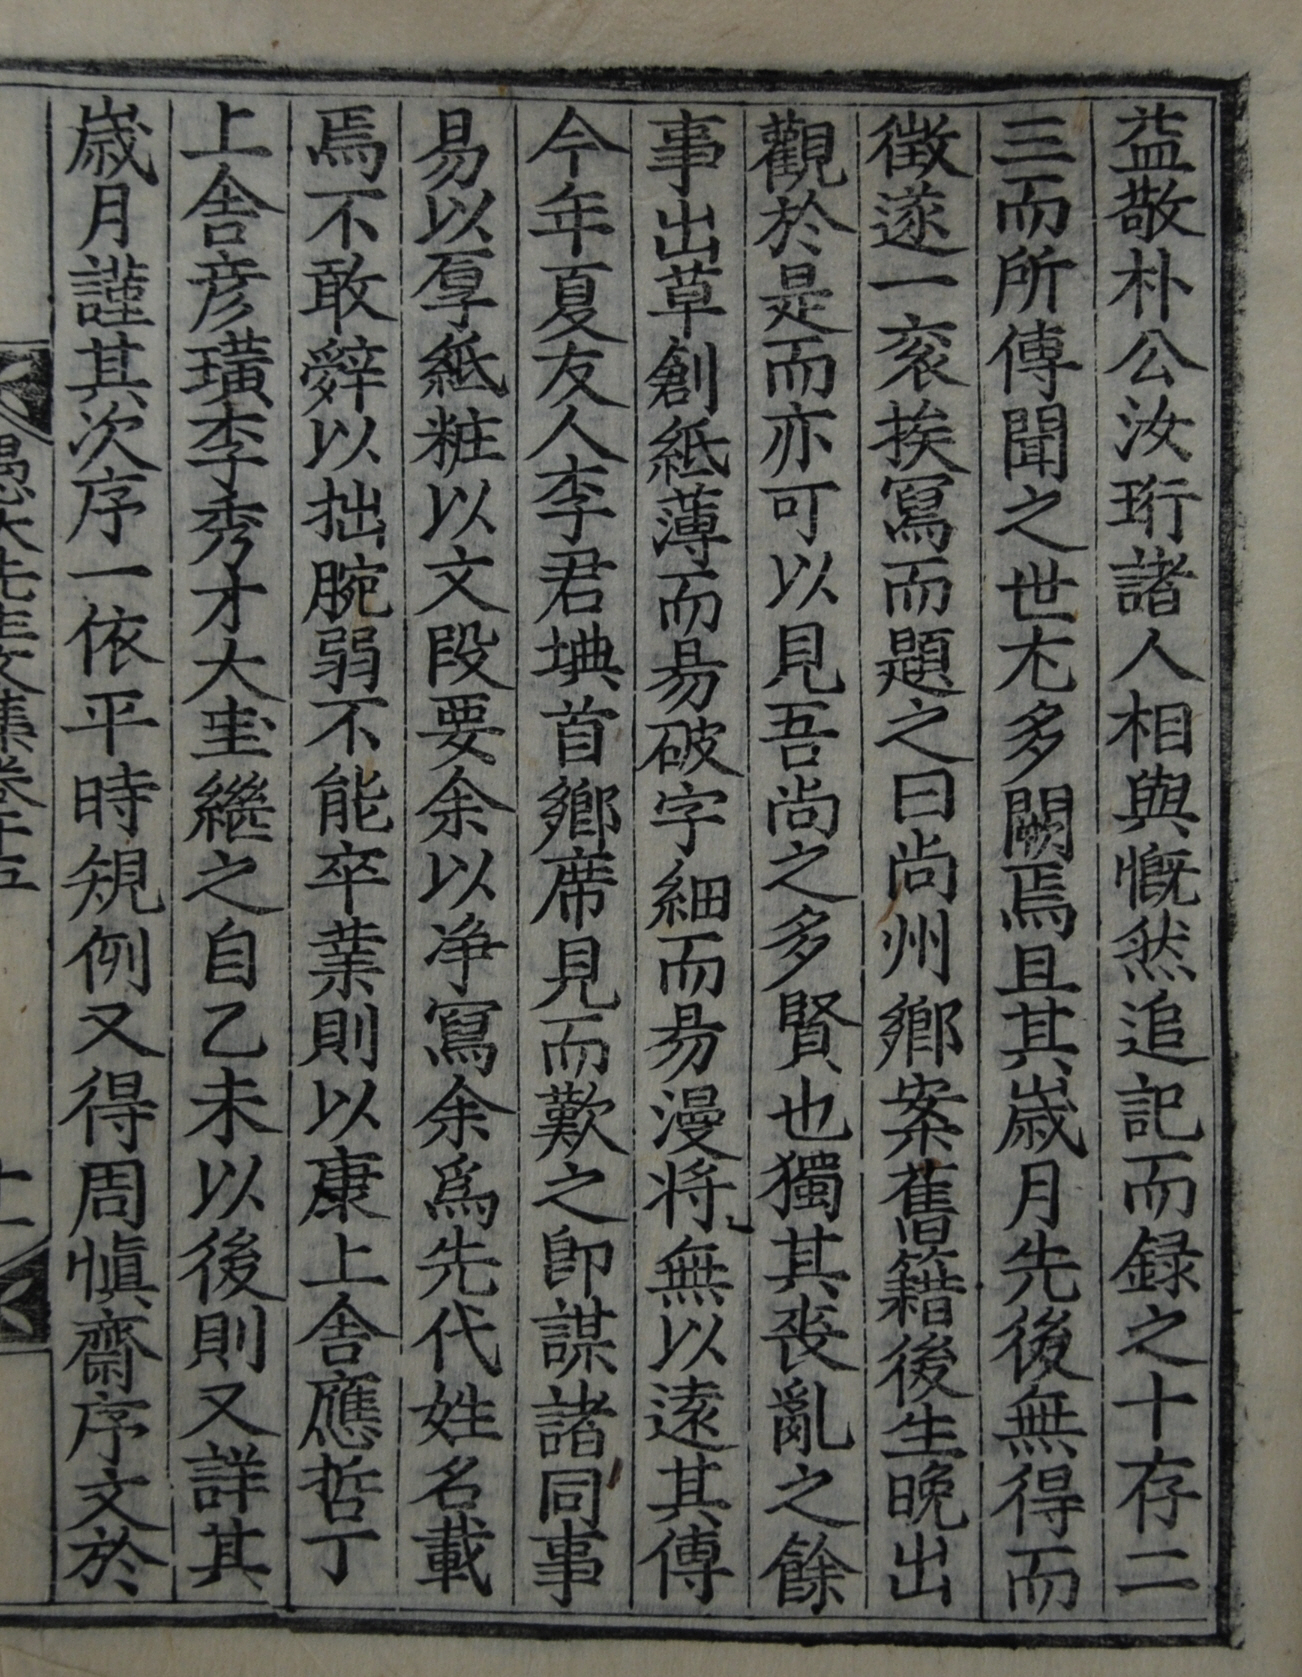 益敬朴公汝珩諸人相與慨然追記而録之十存二
三而所傳聞之世尢多闕焉且其歲月先後無得而
徵遂一衮挨寫而題之曰尚州鄉案舊籍後生晚出
觀於是而亦可以見吾尚之多賢也獨其喪亂之餘
事出草創紙薄而易破字細而易漫將無以遠其傳
今年夏友人李君㙉首鄉席見而歎之卽謀諸同事
易以厚紙粧以文段要余以净寫余爲先代姓名載
焉不敢辤以拙腕弱不能卒業則以康上舍應哲丁
上舍彦璜李秀才大圭繼之自乙未以後則又詳其
歲月謹其次序一依平時規例又得周愼齋序文於
愚伏先生文集卷十五 十一